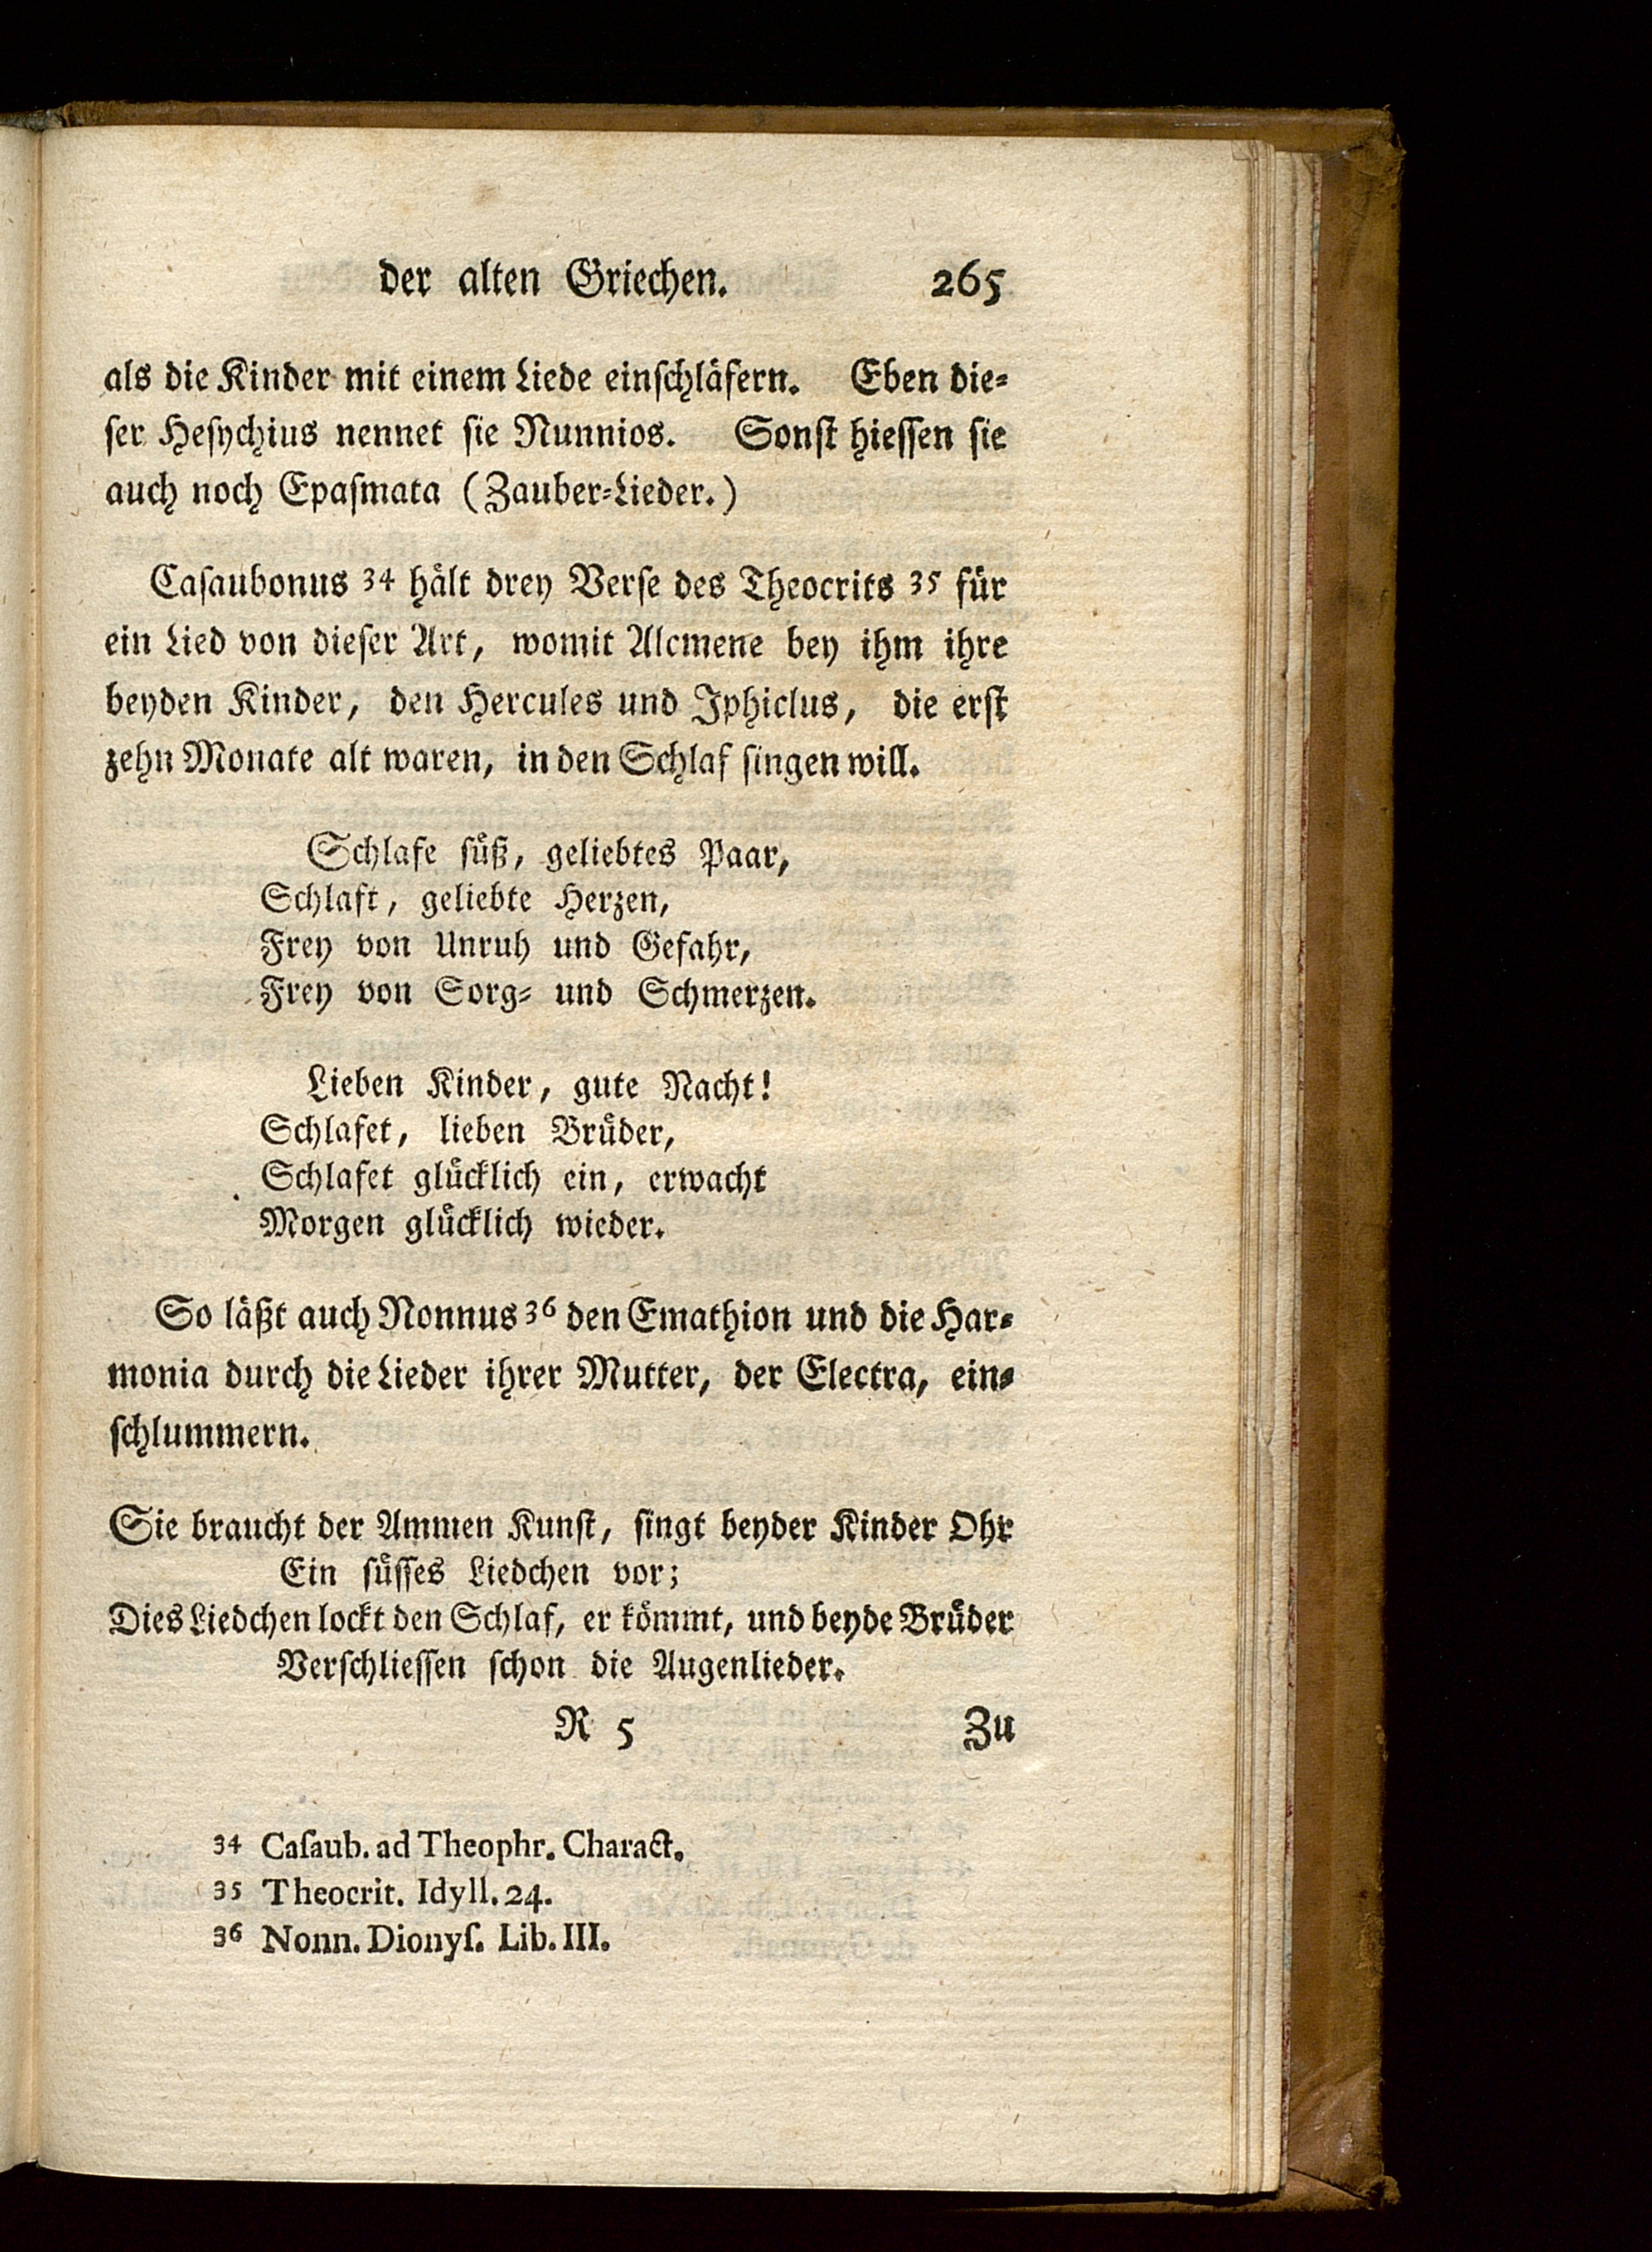 der alten Griechen. 265
als die Kinder mit einem Liede einſchläfern. Eben die⸗
ſer Heſychius nennet ſie Nunnios. Sonſt hieſſen ſie
auch noch Epaſmata (Zauber⸗Lieder.)
Caſaubonus 34 hält drey Verſe des Theocrits 35 für
ein Lied von dieſer Art, womit Alcmene bey ihm ihre
beyden Kinder, den Hercules und Iphiclus, die erſt
zehn Monate alt waren, in den Schlaf ſingen will.
Schlafe ſüß, geliebtes Paar,
Schlaft, geliebte Herzen,
Frey von Unruh und Gefahr,
Frey von Sorg⸗ und Schmerzen.
Lieben Kinder, gute Nacht!
Schlafet, lieben Brüder,
Schlafet glücklich ein, erwacht
Morgen glücklich wieder.
So läßt auch Nonnus 36 den Emathion und die Har⸗
monia durch die Lieder ihrer Mutter, der Electra, ein⸗
ſchlummern.
Sie braucht der Ammen Kunſt, ſingt beyder Kinder Ohr
Ein ſüſſes Liedchen vor;
Dies Liedchen lockt den Schlaf, er kömmt, und beyde Brüder
Verſchlieſſen ſchon die Augenlieder.
R 5 Zu
34 Caſaub. ad Theophr. Charact.
35 Theocrit. Idyll. 24.
36 Nonn. Dionyſ. Lib. III.